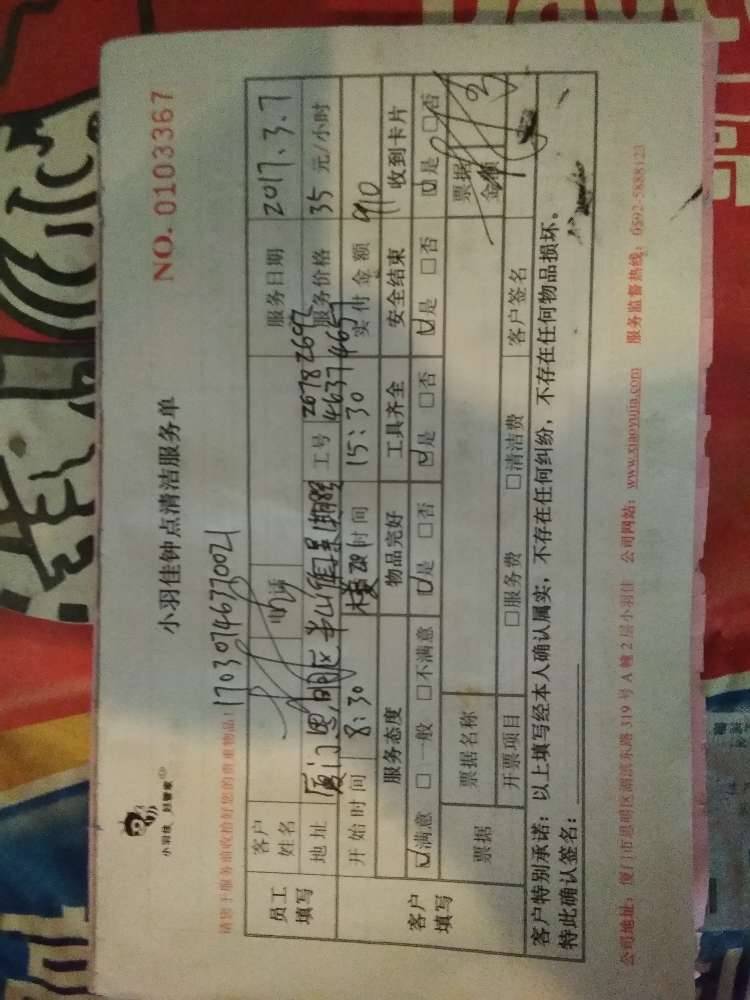 小羽佳 好管家
小羽佳钟点清洁服务单
NO. 0103367
请您于服务前收拾好您的贵重物品！
170307463770021
员工填写
客户姓名
电话
服务日期 2017.3.7
地址 厦门思明区半山
工号 2678 2692
4637 4657
服务价格 35 元/小时
开始时间 8:30
时间 15:30
实付金额 910
客户填写
服务态度 物品完好 工具齐全 安全结束 收到卡片
☑满意 □一般 □不满意 ☑是 □否 ☑是 □否 ☑是 □否 ☑是 □否
票据
票据名称
票据金额
开票项目 □服务费 □清洁费
客户签名
客户特别承诺：以上填写经本人确认属实，不存在任何纠纷，不存在任何物品损坏。
特此确认签名：
公司地址：厦门市思明区湖滨东路 319 号 A 幢 2 层小羽佳 公司网站：www.xiaoyujia.com 服务监督热线：0592-5888123